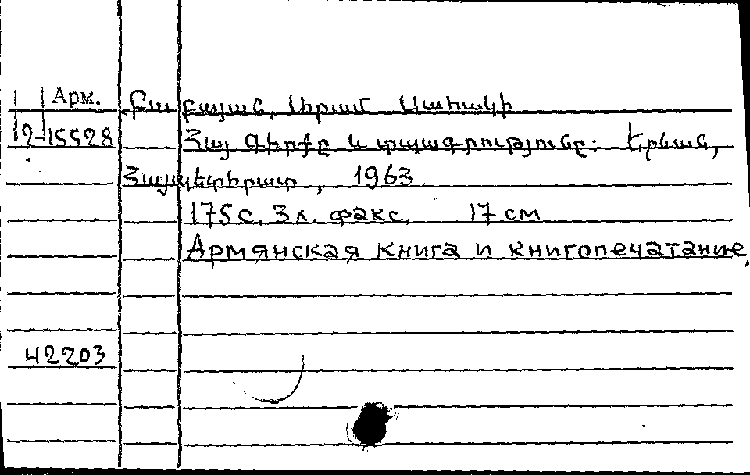 Арм. Բաբայան, Արամ Սահակի
12-15528 Հայ գիրքը և տպագրությունը: Երևան,
Հայպետհրատ, 1963
175 с. 3 л. факс. 17 см
Армянская книга и книгопечатание,
42203